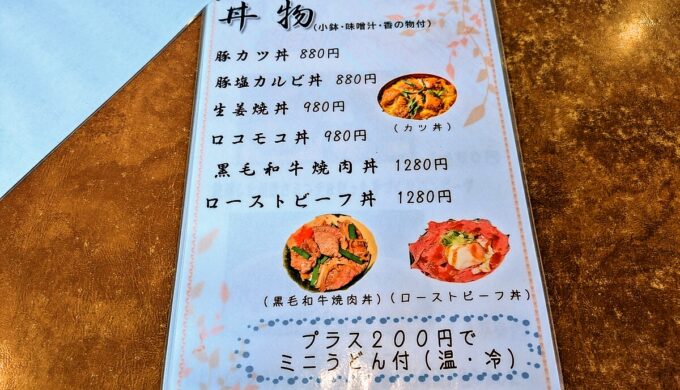 丼物(小鉢・味噌汁・香の物付)
豚カツ丼 880円
豚塩カルビ丼 880円
生姜焼丼 980円
(カツ丼)
ロコモコ丼 980円
黒毛和牛焼肉丼 1280円
ローストビーフ丼 1280円
(黒毛和牛焼肉丼)(ローストビーフ丼)
プラス200円で
ミニうどん付(温・冷)